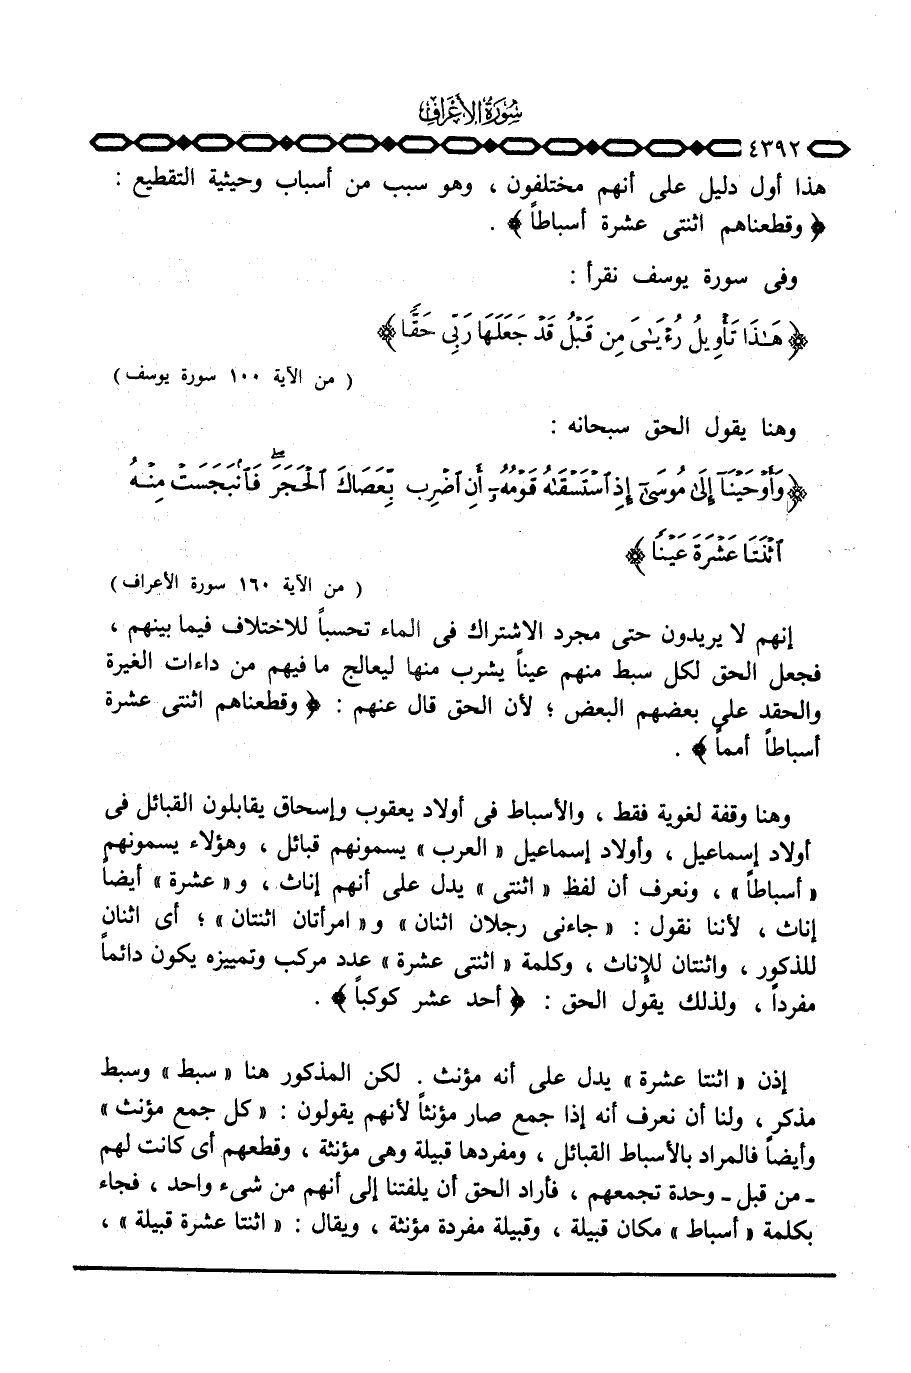 سُورَةُ الأَعْرَافِ
٤٣٩٢
هذا أول دليل على أنهم مختلفون ، وهو سبب من أسباب وحيثية التقطيع :
﴿ وقطعناهم اثنتى عشرة أسباطاً ﴾ .
وفى سورة يوسف نقرأ :
﴿ هَـٰذَا تَأْوِيلُ رُءْيَـٰىَ مِن قَبْلُ قَدْ جَعَلَهَا رَبِّى حَقًّا ﴾
( من الآية ١٠٠ سورة يوسف )
وهنا يقول الحق سبحانه :
﴿ وَأَوْحَيْنَآ إِلَىٰ مُوسَىٰٓ إِذِ ٱسْتَسْقَىٰهُ قَوْمُهُۥٓ أَنِ ٱضْرِب بِّعَصَاكَ ٱلْحَجَرَ ۖ فَٱنۢبَجَسَتْ مِنْهُ
ٱثْنَتَا عَشْرَةَ عَيْنًا ﴾
( من الآية ١٦٠ سورة الأعراف )
إنهم لا يريدون حتى مجرد الاشتراك فى الماء تحسباً للاختلاف فيما بينهم ،
فجعل الحق لكل سبط منهم عيناً يشرب منها ليعالج ما فيهم من داءات الغيرة
والحقد على بعضهم البعض ؛ لأن الحق قال عنهم : ﴿ وقطعناهم اثنتى عشرة
أسباطاً أمماً ﴾ .
وهنا وقفة لغوية فقط ، والأسباط فى أولاد يعقوب وإسحاق يقابلون القبائل فى
أولاد إسماعيل ، وأولاد إسماعيل « العرب » يسمونهم قبائل ، وهؤلاء يسمونهم
« أسباطاً » ، ونعرف أن لفظ « اثنتى » يدل على أنهم إناث ، و « عشرة » أيضاً
إناث ، لأننا نقول : « جاءنى رجلان اثنان » و « امرأتان اثنتان » ؛ أى اثنان
للذكور ، واثنتان للإناث ، وكلمة « اثنتى عشرة » عدد مركب وتمييزه يكون دائماً
مفرداً ، ولذلك يقول الحق : ﴿ أحد عشر كوكباً ﴾ .
إذن « اثنتا عشرة » يدل على أنه مؤنث . لكن المذكور هنا « سبط » وسبط
مذكر ، ولنا أن نعرف أنه إذا جمع صار مؤنثاً لأنهم يقولون : « كل جمع مؤنث »
وأيضاً فالمراد بالأسباط القبائل ، ومفردها قبيلة وهى مؤنثة ، وقطعهم أى كانت لهم
ـ من قبل ـ وحدة تجمعهم ، فأراد الحق أن يلفتنا إلى أنهم من شىء واحد ، فجاء
بكلمة « أسباط » مكان قبيلة ، وقبيلة مفردة مؤنثة ، ويقال : « اثنتا عشرة قبيلة » ،